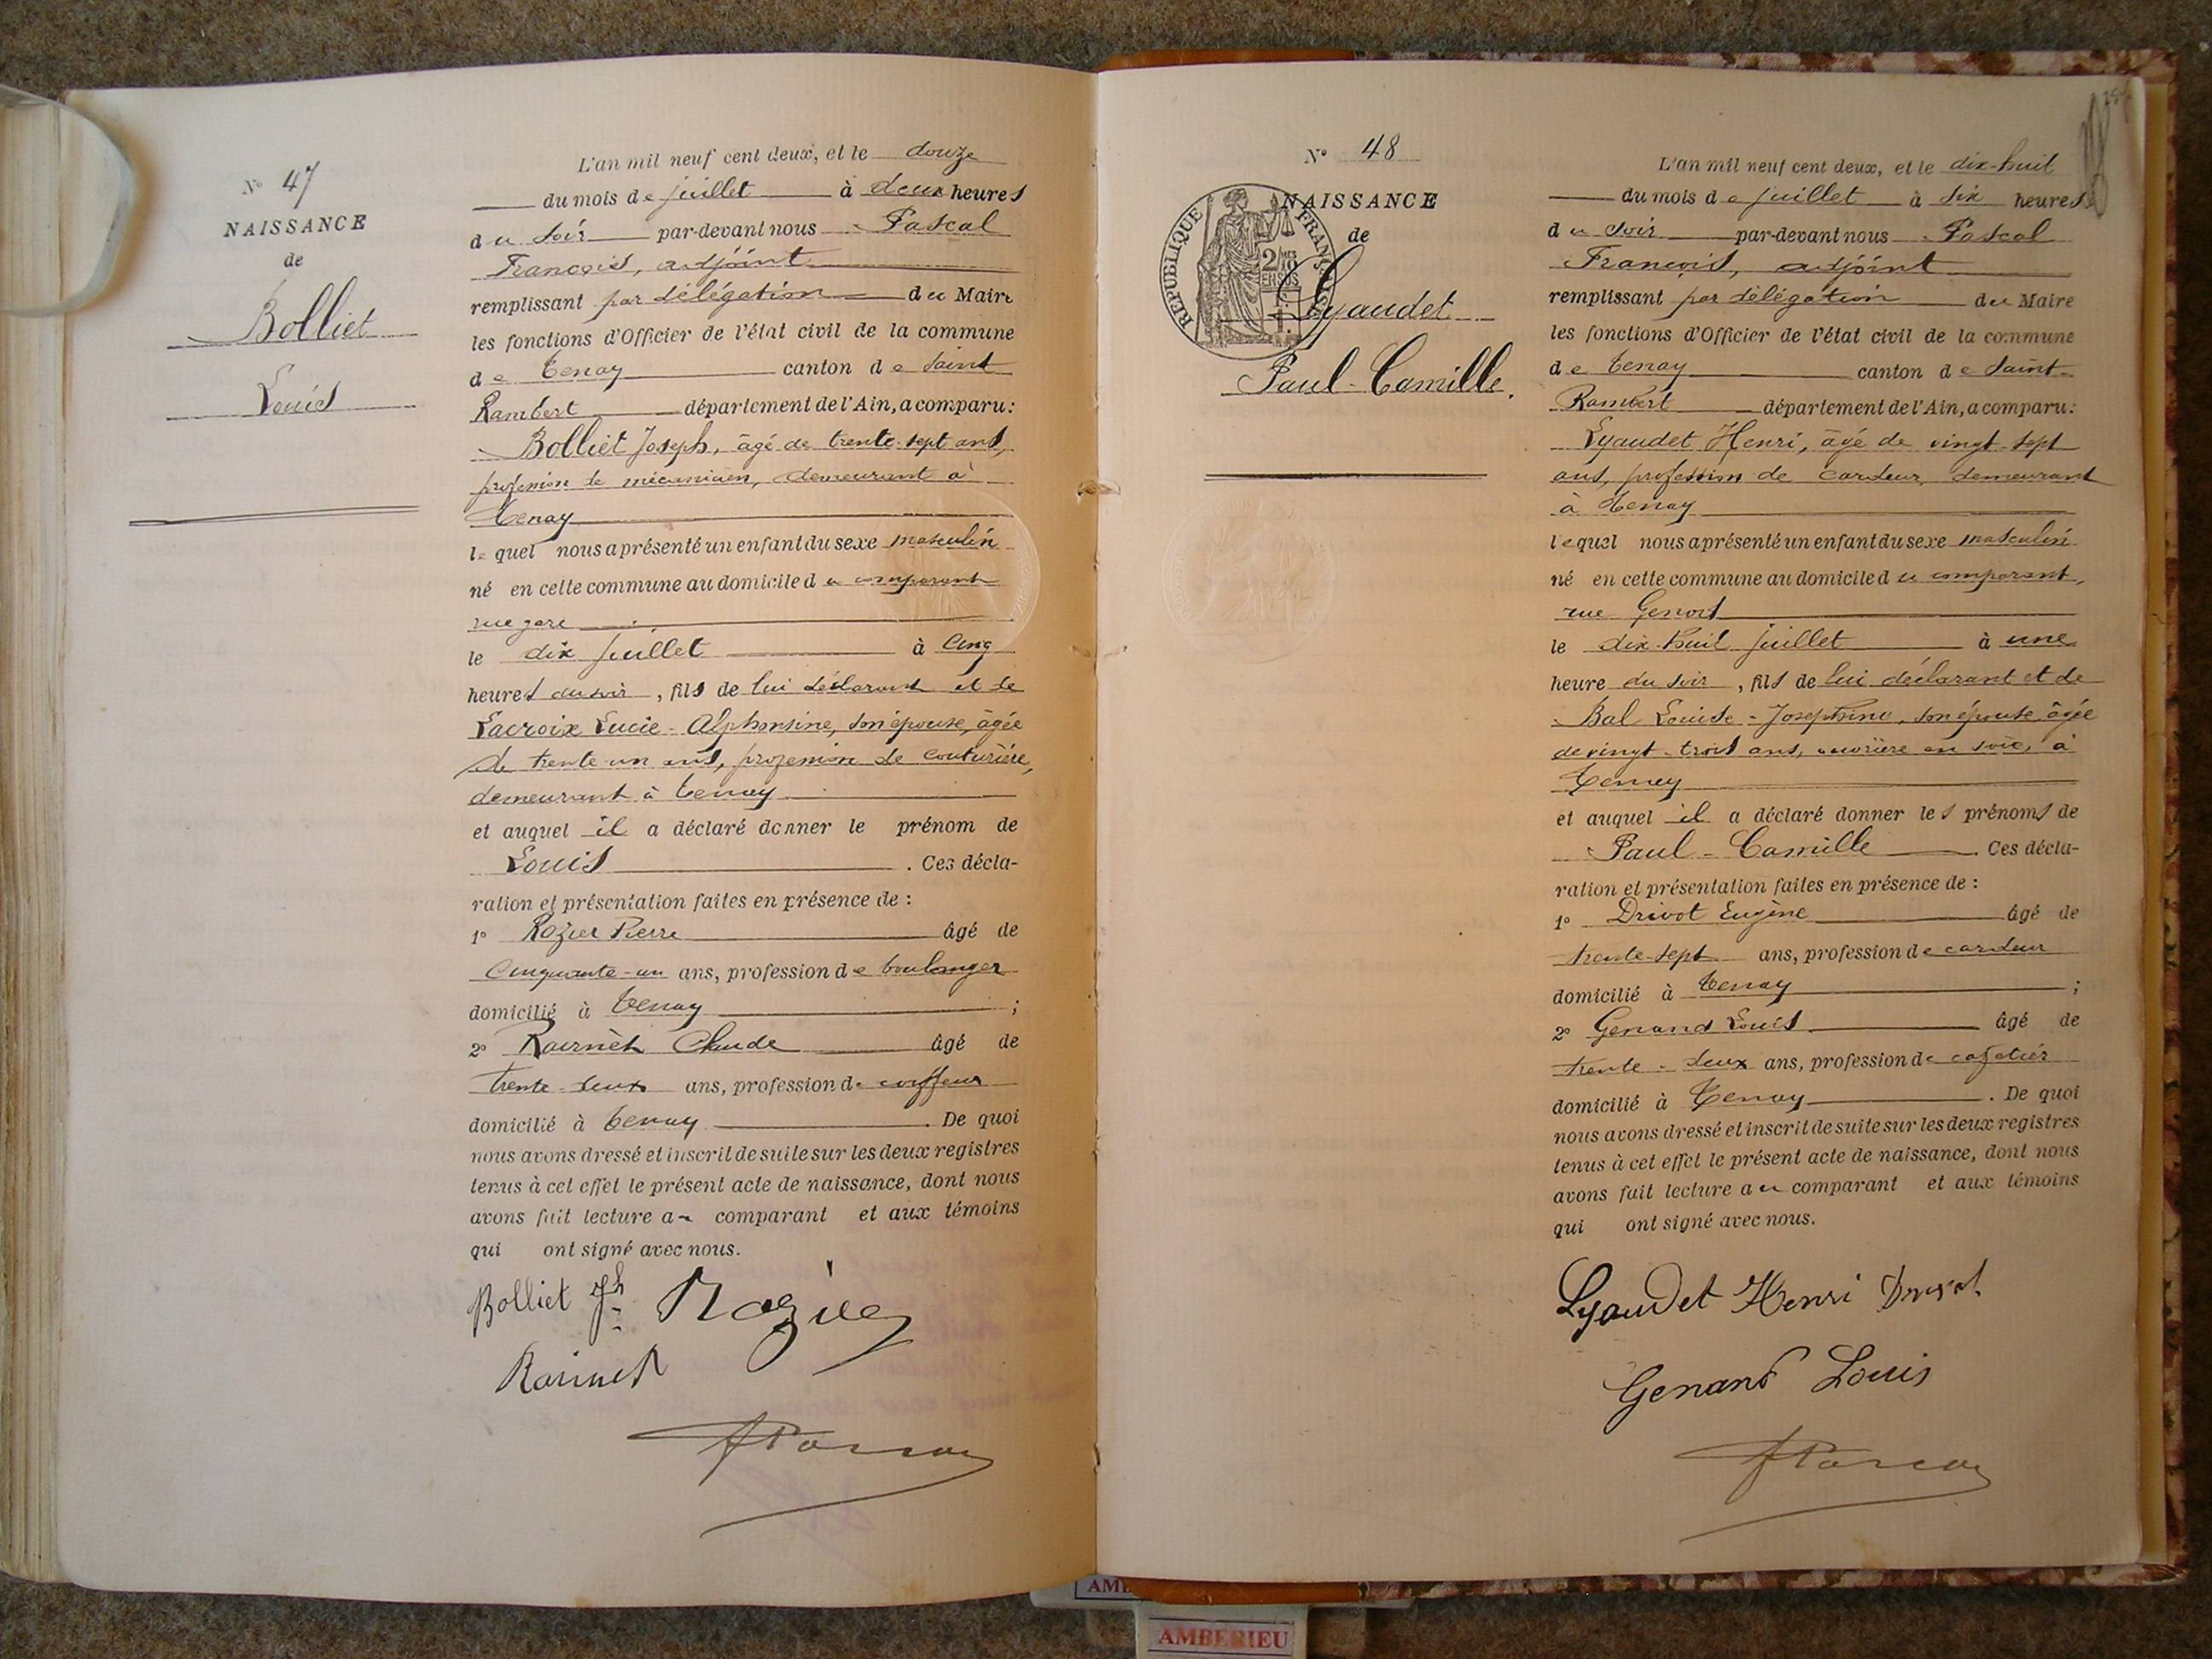 N° 47
NAISSANCE
de
Bolliet
Louis
L'an mil neuf cent deux, et le douze
du mois de juillet à deux heures
du soir par-devant nous Pascal
François, adjoint
remplissant par délégation du Maire
les fonctions d'Officier de l'état civil de la commune
de Tenay canton de Saint
Rambert département de l'Ain, a comparu :
Bolliet Joseph, âgé de trente-sept ans,
profession de mécanicien, demeurant à
Tenay
lequel nous a présenté un enfant du sexe masculin
né en cette commune au domicile du comparant
rue gare
le dix juillet à cinq
heures du soir, fils de lui déclarant et de
Lacroix Lucie-Alphonsine, son épouse, âgée
de trente-un ans, profession de couturière,
demeurant à Tenay
et auquel il a déclaré donner le prénom de
Louis. Ces décla-
ration et présentation faites en présence de :
1° Rozier Pierre âgé de
cinquante-un ans, profession de boulanger
domicilié à Tenay ;
2° Claude âgé de
trente-deux ans, profession de coiffeur
domicilié à Tenay. De quoi
nous avons dressé et inscrit de suite sur les deux registres
tenus à cet effet le présent acte de naissance, dont nous
avons fait lecture au comparant et aux témoins
qui ont signé avec nous.
Bolliet Jh Rozier
N° 48
NAISSANCE
de
RÉPUBLIQUE FRANÇAISE
2/10 EN SUS
Lyaudet
Paul-Camille.
L'an mil neuf cent deux, et le dix-huit
du mois de juillet à six heures
du soir par-devant nous Pascal
François, adjoint
remplissant par délégation du Maire
les fonctions d'Officier de l'état civil de la commune
de Tenay canton de Saint-
Rambert département de l'Ain, a comparu :
Lyaudet Henri, âgé de vingt-sept
ans, profession de cardeur, demeurant
à Tenay
lequel nous a présenté un enfant du sexe masculin
né en cette commune au domicile du comparant,
rue
le dix-huit juillet à une
heure du soir, fils de lui déclarant et de
Bal Louise-Joséphine, son épouse, âgée
de vingt-trois ans, ouvrière en soie, à
Tenay
et auquel il a déclaré donner les prénoms de
Paul-Camille. Ces décla-
ration et présentation faites en présence de :
1° Drivot Eugène âgé de
trente-sept ans, profession de cardeur
domicilié à Tenay ;
2° Genand Louis âgé de
trente-deux ans, profession de cafetier
domicilié à Tenay. De quoi
nous avons dressé et inscrit de suite sur les deux registres
tenus à cet effet le présent acte de naissance, dont nous
avons fait lecture au comparant et aux témoins
qui ont signé avec nous.
Lyaudet Henri Drivot
Genand Louis
AMBERIEU